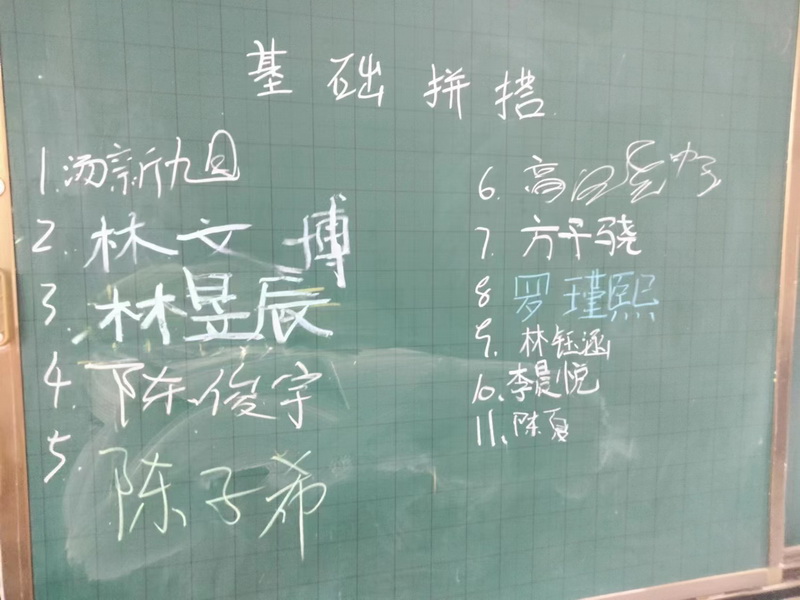 基础拼搭
1.汤新旭
2.林文博
3.林昱辰
4.陈俊宇
5.陈子希
6.高
7.方子骁
8罗瑾熙
9.林钰涵
10.李晨悦
11、陈夏